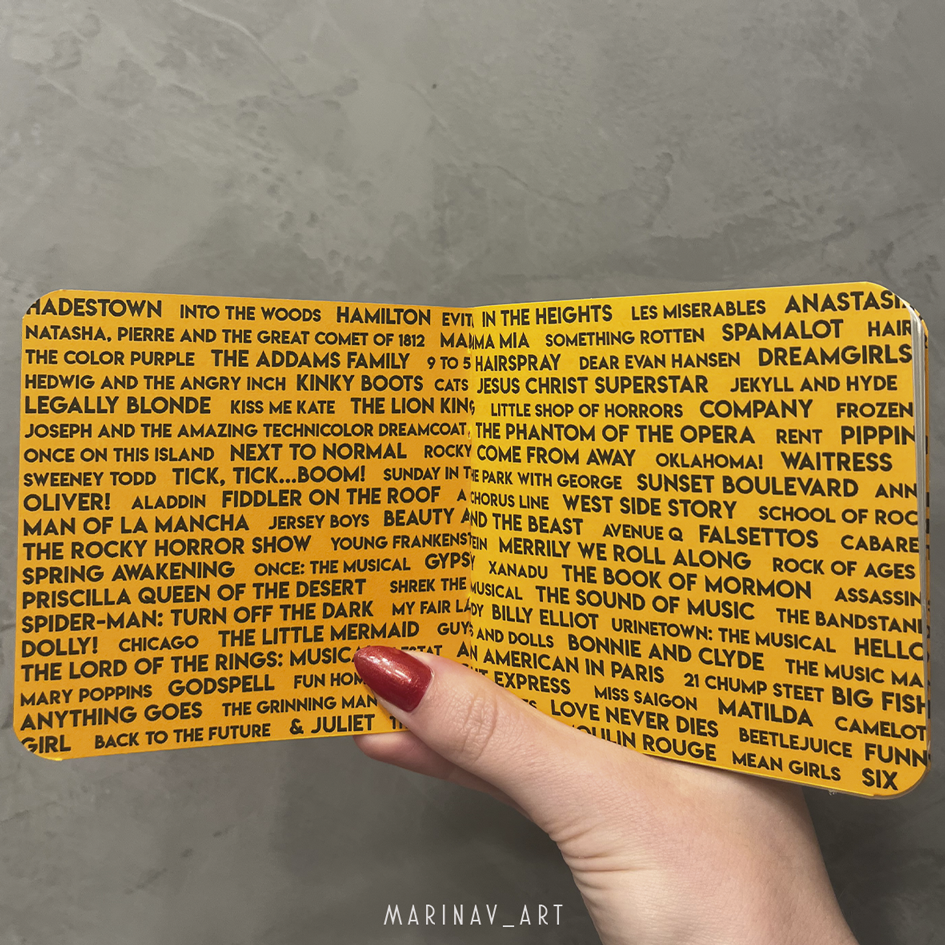 HADESTOWN INTO THE WOODS HAMILTON EVIT IN THE HEIGHTS LES MISERABLES ANASTASI
NATASHA, PIERRE AND THE GREAT COMET OF 1812 MAMMA MIA SOMETHING ROTTEN SPAMALOT HAIR
THE COLOR PURPLE THE ADDAMS FAMILY 9 TO 5 HAIRSPRAY DEAR EVAN HANSEN DREAMGIRLS
HEDWIG AND THE ANGRY INCH KINKY BOOTS CATS JESUS CHRIST SUPERSTAR JEKYLL AND HYDE
LEGALLY BLONDE KISS ME KATE THE LION KING LITTLE SHOP OF HORRORS COMPANY FROZEN
JOSEPH AND THE AMAZING TECHNICOLOR DREAMCOAT THE PHANTOM OF THE OPERA RENT PIPPIN
ONCE ON THIS ISLAND NEXT TO NORMAL ROCKY COME FROM AWAY OKLAHOMA! WAITRESS
SWEENEY TODD TICK, TICK...BOOM! SUNDAY IN THE PARK WITH GEORGE SUNSET BOULEVARD ANN
OLIVER! ALADDIN FIDDLER ON THE ROOF A CHORUS LINE WEST SIDE STORY SCHOOL OF ROC
MAN OF LA MANCHA JERSEY BOYS BEAUTY AND THE BEAST AVENUE Q FALSETTOS CABARE
THE ROCKY HORROR SHOW YOUNG FRANKENSTEIN MERRILY WE ROLL ALONG ROCK OF AGES
SPRING AWAKENING ONCE: THE MUSICAL GYPSY XANADU THE BOOK OF MORMON ASSASSIN
PRISCILLA QUEEN OF THE DESERT SHREK THE MUSICAL THE SOUND OF MUSIC THE BANDSTAND
SPIDER-MAN: TURN OFF THE DARK MY FAIR LADY BILLY ELLIOT URINETOWN: THE MUSICAL HELLO
DOLLY! CHICAGO THE LITTLE MERMAID GUYS AND DOLLS BONNIE AND CLYDE THE MUSIC MA
THE LORD OF THE RINGS: MUSIC AN AMERICAN IN PARIS 21 CHUMP STEET BIG FISH
MARY POPPINS GODSPELL FUN HOM EXPRESS MISS SAIGON MATILDA CAMELOT
ANYTHING GOES THE GRINNING MAN LOVE NEVER DIES BEETLEJUICE FUNN
GIRL BACK TO THE FUTURE & JULIET OULIN ROUGE MEAN GIRLS SIX
MARINAV_ART